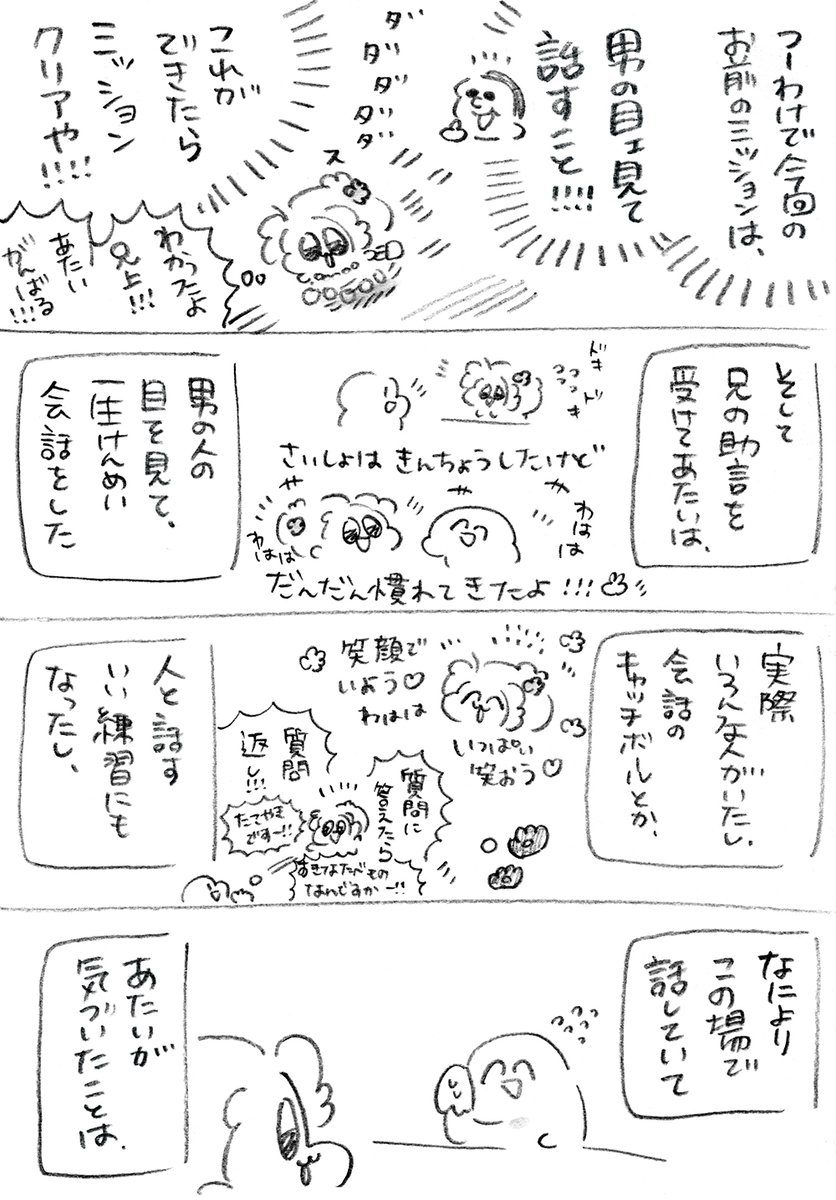 つーわけで今回の
お前のミッションは、
男の目ェ見て
話すこと!!!!
ダ
ダ
ダ
ダ
ダ
これが
できたら
ミッション
クリアや!!!!
ス
わかったよ
兄上!!!
あたい
がんばる!!!
そして
兄の助言を
受けてあたいは、
ドキ
ドキ
さいしょは きんちょうしたけど
わはは
わはは
だんだん慣れてきたよ!!!
男の人の
目を見て、
一生けんめい
会話をした
実際
いろんな人がいたし、
会話の
キャッチボールとか、
笑顔で
いよう♡
わはは
いっぱい
笑おう♡
質問に
答えたら
質問
返し!!!
たてやき
ですー!!
すきなたべもの
なんですかー!!
人と話す
いい練習にも
なったし、
なにより
この場で
話していて
あたいが
気づいたことは、